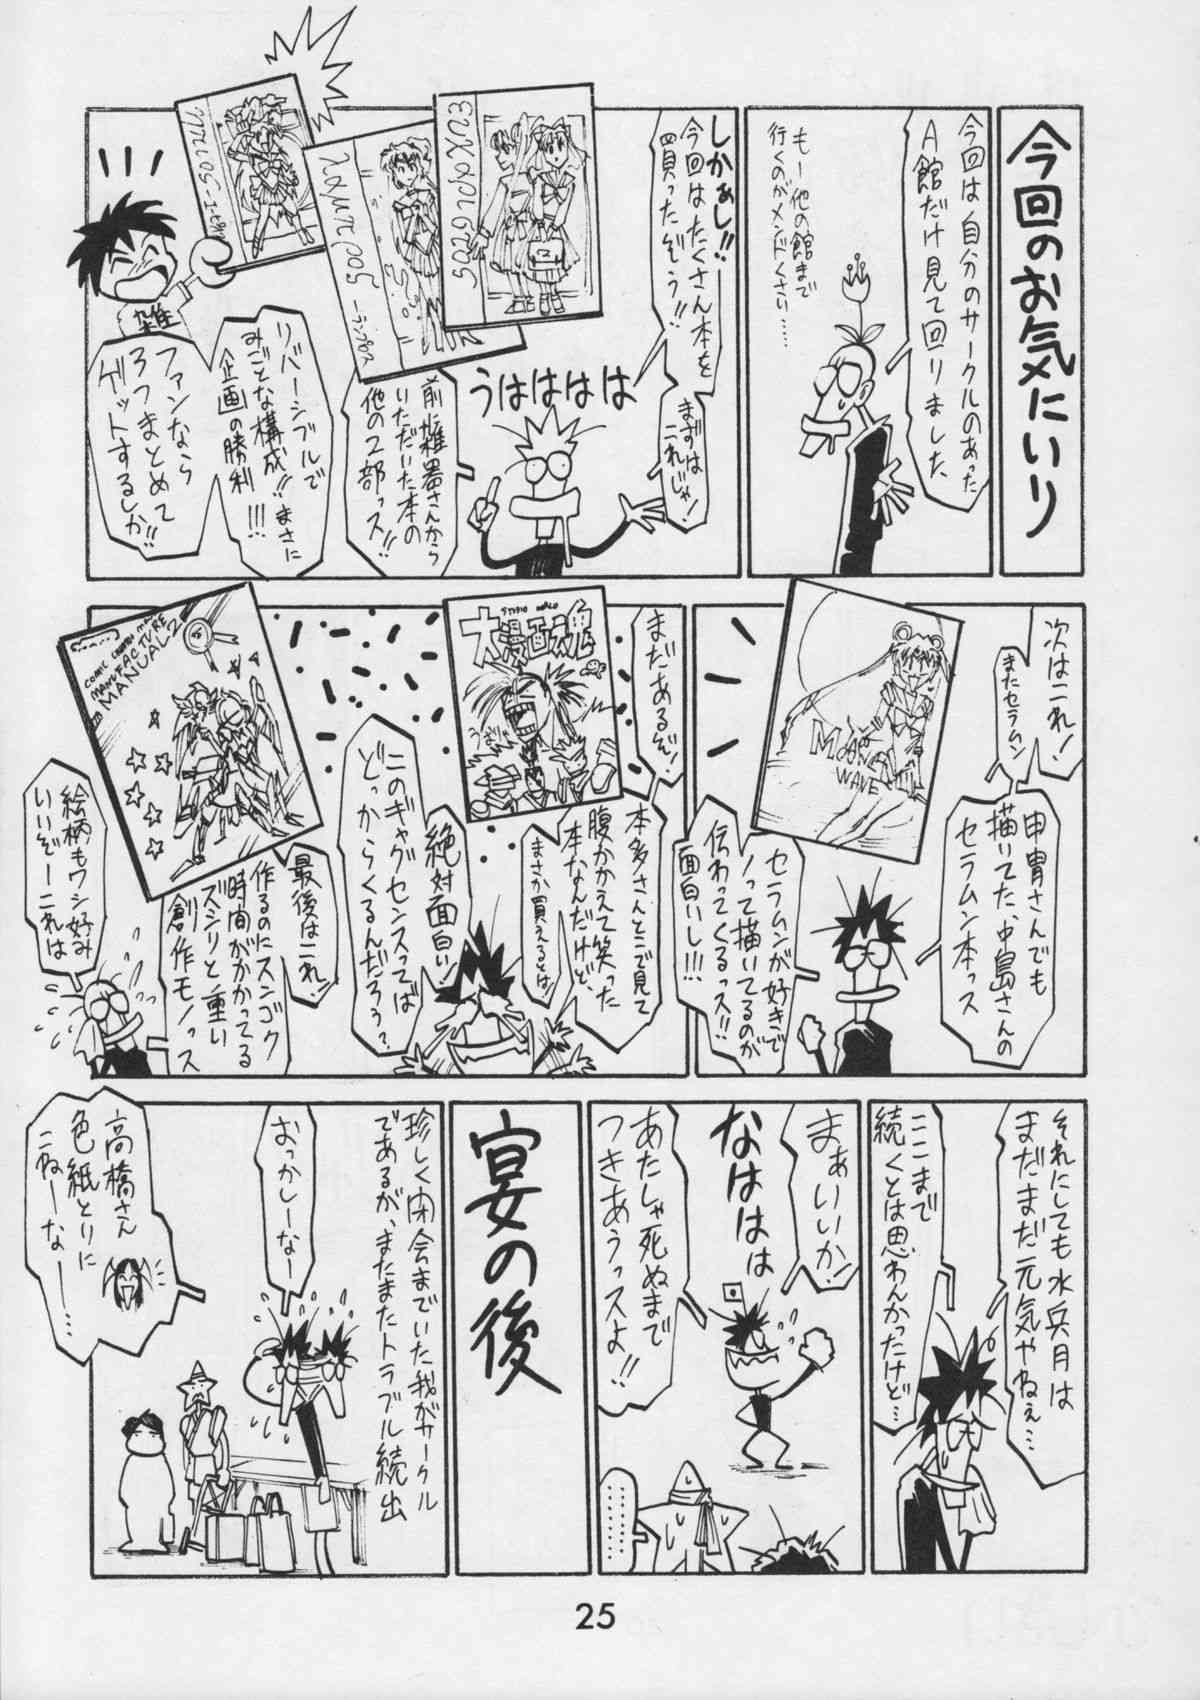 今回のお気にいり
今回は自分のサークルのあった
A館だけ見て回りました
もー他の館まで
行くのがメンドくさい……
しかぁし!!
今回はたくさん本を
買ったぞう!!
まずは
これじゃ!
うはははは
前に雑器さんから
いただいた本の
他の2部っス!!
リバーシブルで
みごとな構成!! まさに
企画の勝利!!!
ファンなら
3つまとめて
ゲットするしか!!
雑
次はこれ!
またセラムン
申胃さんでも
描いてた、中島さんの
セラムン本っス
MOON
WAVE
セラムンが好きで
ノって描いてるのが
伝わってくるっス!!
面白いし!!!
まだあるぞ!
STUDIO
大漫画魂
本多さんとこで見て
腹かかえて笑った
本なんだけど、
まさか買えるとは
絶対面白い
このギャグセンスってば
どっからくるんだろう?
最後はこれ!
作るのにスンゴク
時間がかかってる
ズシリと重い
創作モノっス
COMIC
MANUFACTURE
MANUAL 2
絵柄もワシ好み
いいぞーこれは
それにしても水兵月は
まだまだ元気やねぇ…
ここまで
続くとは思わんかったけど…
まぁいいか!
なははは
あたしゃ死ぬまで
つきあうっスよ!!
………
宴の後
珍しく閉会までいた我がサークル
であるが、またまたトラブル続出
おっかしーなー
高橋さん
色紙とりに
こねーなー…
25